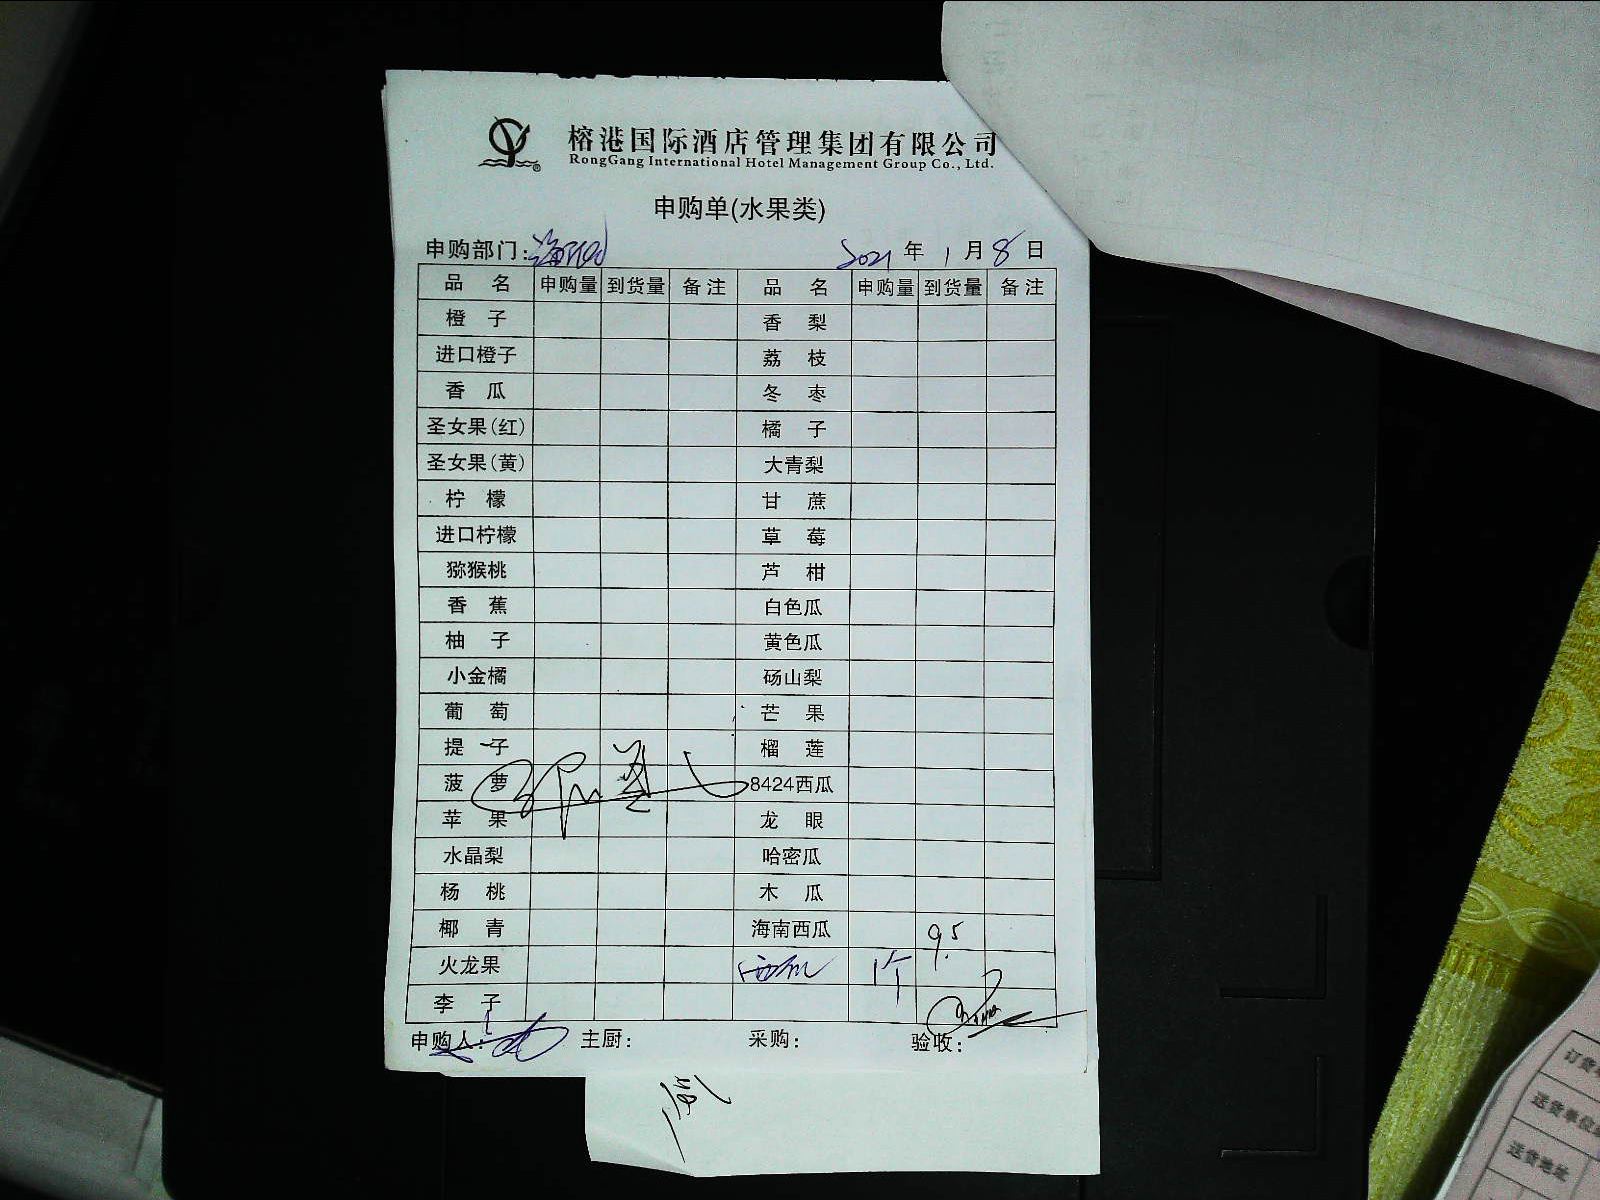 榕港国际酒店管理集团有限公司
RongGang International Hotel Management Group Co., Ltd.
申购单(水果类)
申购部门: 2021 年 1 月 8 日
品 名 申购量 到货量 备注 品 名 申购量 到货量 备注
橙 子 香 梨
进口橙子 荔 枝
香 瓜 冬 枣
圣女果(红) 橘 子
圣女果(黄) 大青梨
柠 檬 甘 蔗
进口柠檬 草 莓
猕猴桃 芦 柑
香 蕉 白色瓜
柚 子 黄色瓜
小金橘 砀山梨
葡 萄 芒 果
提 子 榴 莲
菠 萝 8424西瓜
苹 果 龙 眼
水晶梨 哈密瓜
杨 桃 木 瓜
椰 青 海南西瓜 9.5
火龙果 西瓜 1个
李 子
申购人: 主厨: 采购: 验收:
订货
送货单位
送货地址